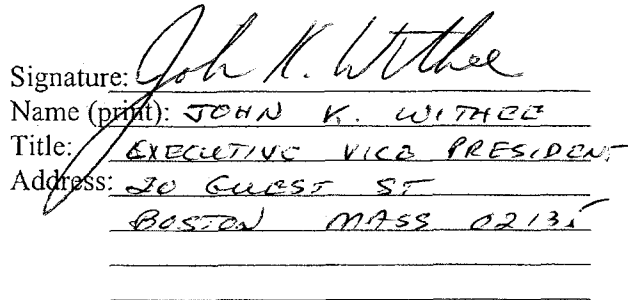 Signature: John K. Withee
Name (print): JOHN K. WITHEE
Title: EXECUTIVE VICE PRESIDENT
Address: 20 GUEST ST
BOSTON MASS 02135